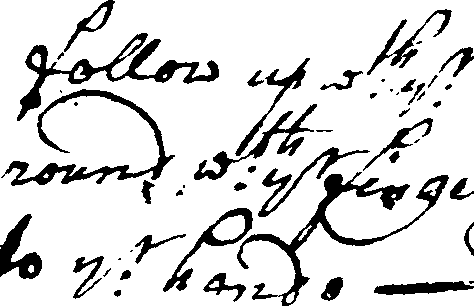 follow up wth yr
round wth yr finge
to yr hands —